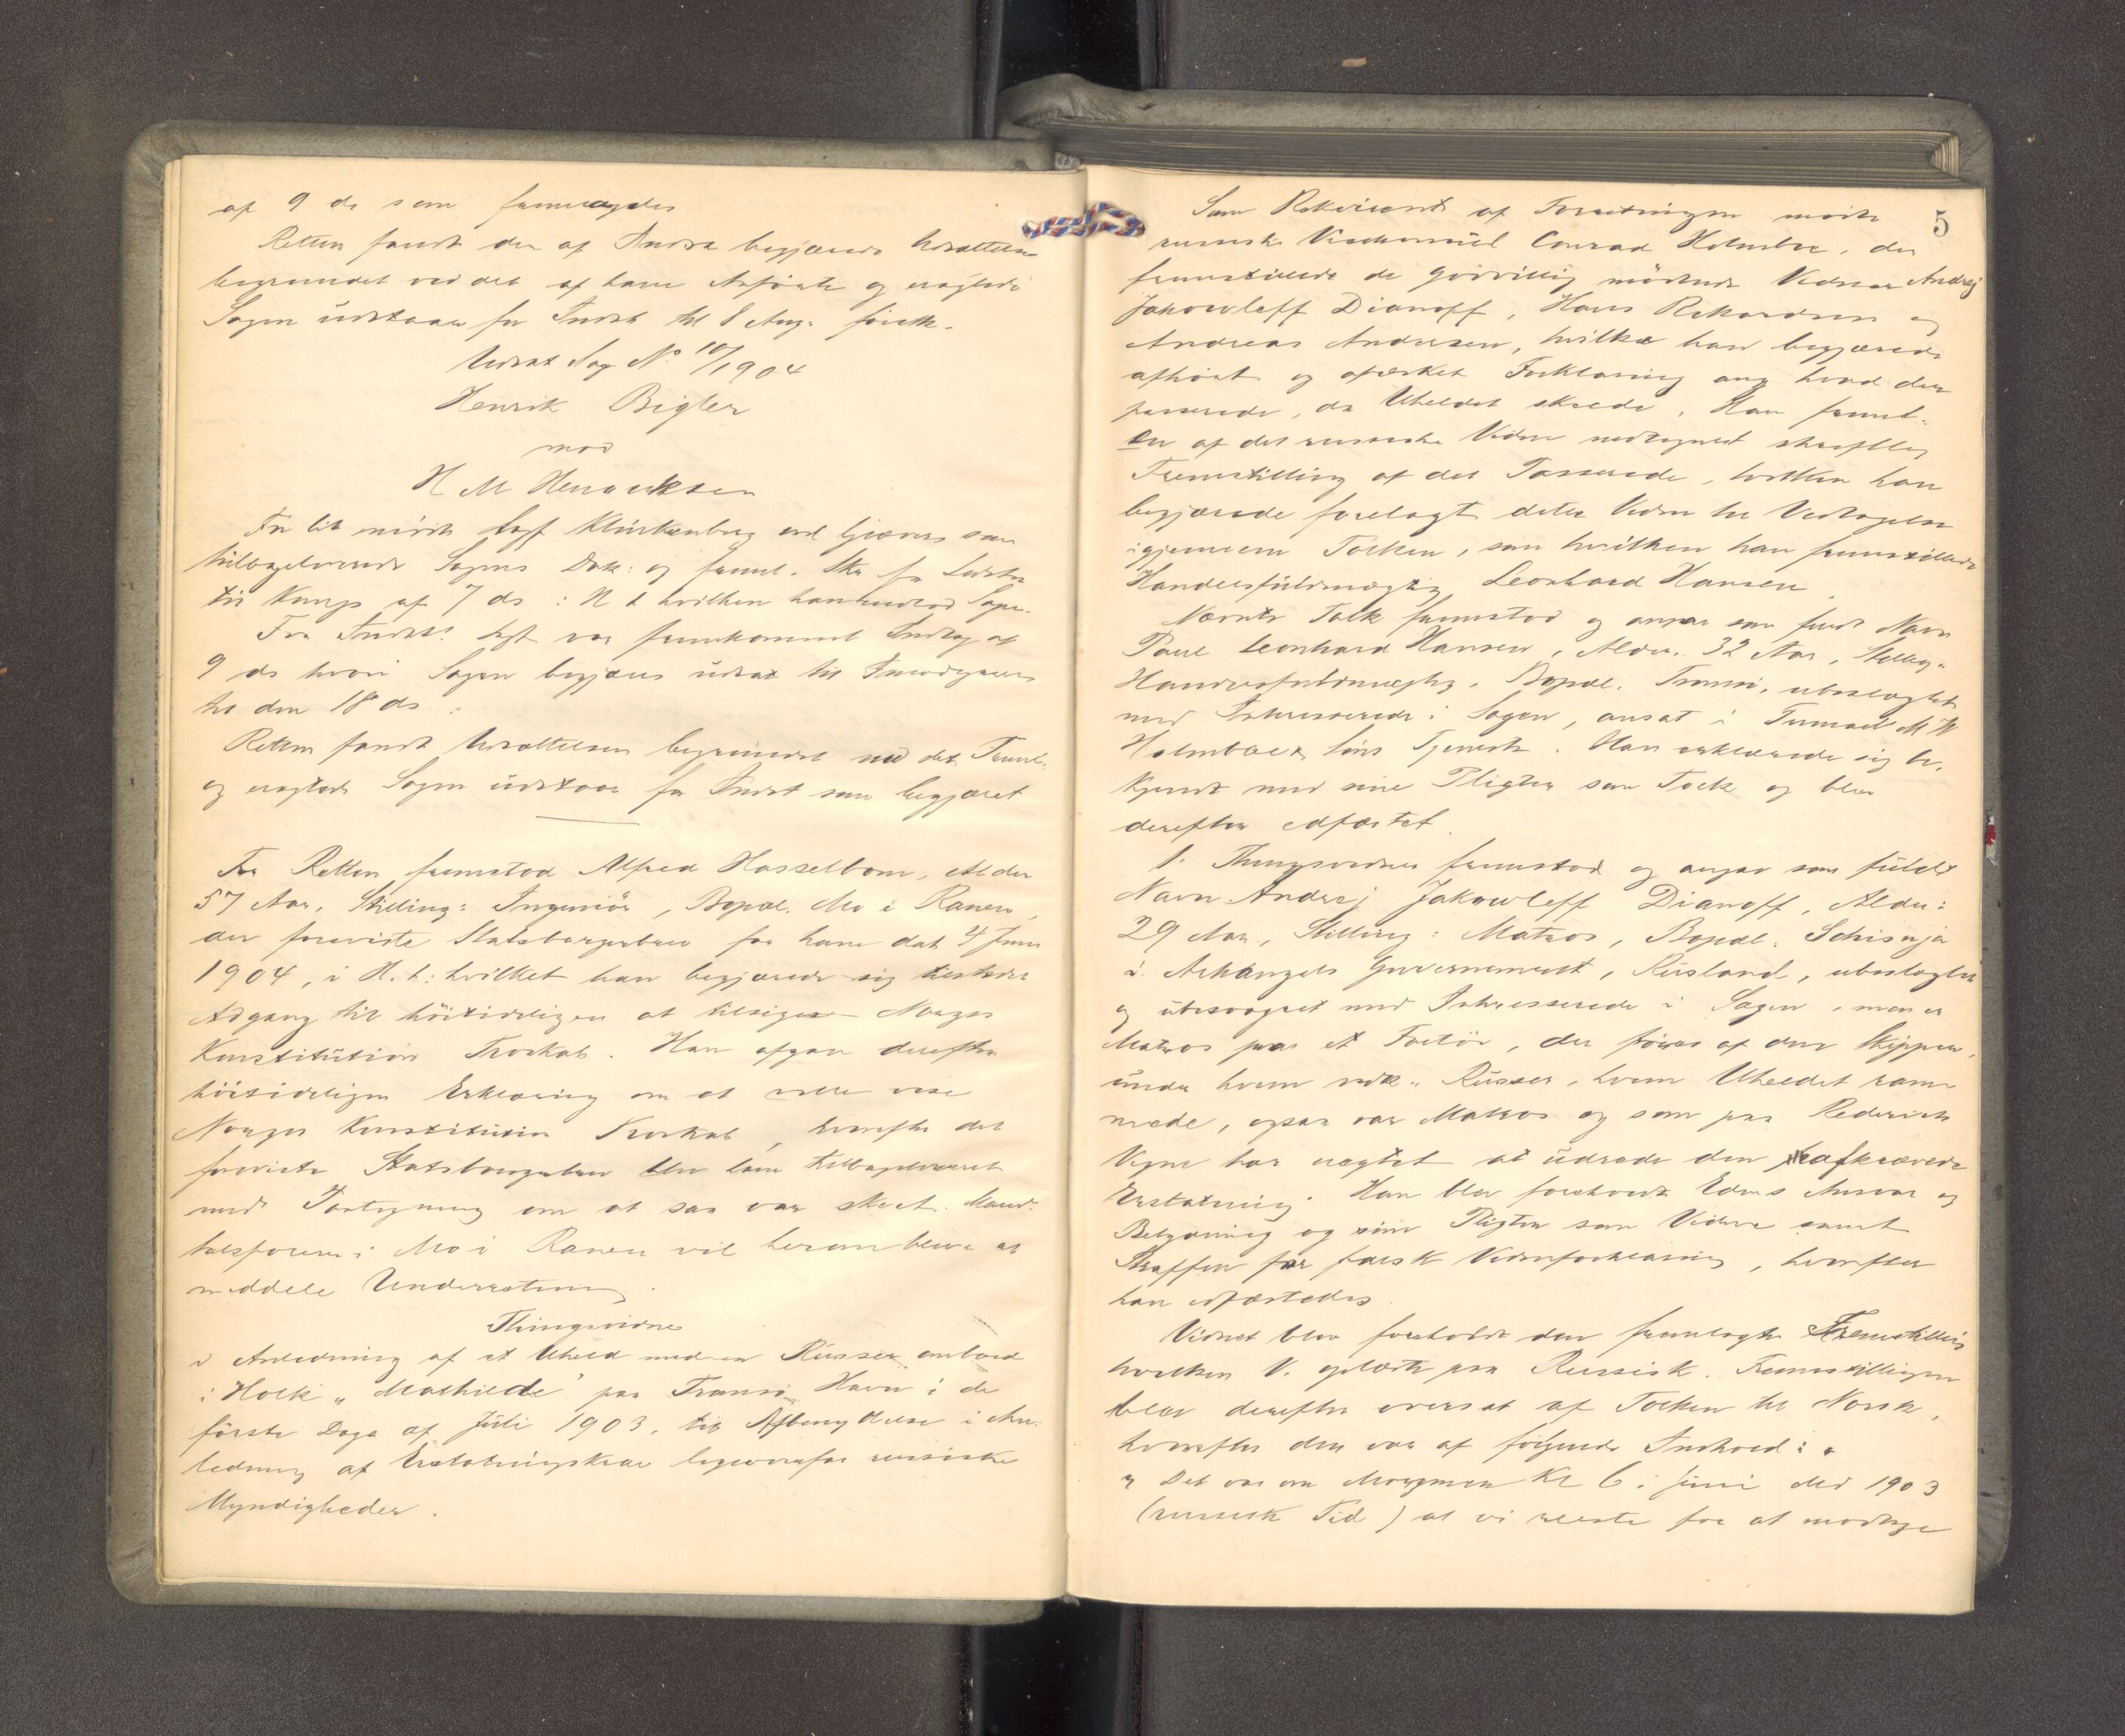 af 9 ds som fremlagdes
Retten fandt den af Indst begjærede Udsættelse
begrundet ved det af ham Anførte og eragtede
Sagen udstaar for Indst til 8 Aug. førstk.
Udsat Sag No 10/1904
Henrik Bigler
mod
H M Henriksen
For Cit mødte Sagf Klürkenberg ved som
tilbageleverede Sagens Dok: og freml. Skr fra
af 7 ds : H t hvilken han Sage.
Fra Indst: Sagf var fremkommet Indlæg af
9 ds hvori Sagen begjæres udsat til Imødegaaelse
til den 18 ds
Retten fandt Udsættelsen begrundet ved det Freml.
og eragtede Sagen udstaar for Indst som begjæret
For Retten fremstod Alfred Hasselbom, Alder
57 Aar, Stilling: Ingeniör, Bopæl. Mo i Ranen,
der foreviste Statsborgerbrev for ham dat 4 Juni
1904, i H. t: hvilket han begjærede sig tilstedet
Adgang til höitideligen at tilsige Norges
Konstitution Troskab. Han afgav derefter
höitideligen Erklæring om at ville vise
Norges Konstitution Troskab, hvorefter det
foreviste Statsborgerbrev blev ham tilbageleveret
med Paategning om at saa var skeet. Mand-
talsføreren i Mo i Ranen vil herom blive at
meddele Underretning.
Thingsvidne
i Anledning af et Uheld med en Russer ombord
i Holk „Mathilde" paa Tromsö Havn i de
förste Dage af Juli 1903, til Afbenyttelse i An-
ledning af Erstatningskrav ligeoverfor russiske
Myndigheder.
5
Som Rekvirent af Forretningen mødte
russisk Vicekonsul Conrad Holmboe, der
fremstillede de godvillig mødende Vidner Andrej
Jakowleff Dianoff, Hans Rikardsen og
Andreas Andresen, hvilke han begjærede
afhørt og afæsket Forklaring ang hvad der
passerede, da Uheldet skede. Han freml.
en af det russiske Vidne nedtegnet skriftlig
Fremstilling af det Passerede, hvilken han
begjærede forelagt dette Vidne til Vedtagelse
igjennem Tolken, som hvilken han fremstillede
Handelsfuldmægtig Leonhard Hansen.
Nævnte Tolk fremstod og angav som fuldt Navn
Paul Leonhard Hansen, Alder. 32 Aar, Stilling.
Handelsfuldmægtig. Bopæl. Tromsö, ubeslægtet
med Interesserede i Sagen, ansat i Firmaet M W
Holmboe & Söns Tjeneste. Han erklærede sig be-
kjendt med sine Pligter som Tolk og blev
derefter edfæstet.
1. Thingsvidne fremstod og angav som fuldt
Navn Andrej Jakowleff Dianoff, Alder:
29 Aar, Stilling: Matros, Bopæl: Schisnja
i Arkangels Guvernement, Rusland, ubeslægtet
og ubesvogret med Interesserede i Sagen, men er
Matros paa et Fartöi, der föres af den Skipper,
under hvem vedk. Russer, hvem Uheldet ram-
mede, ogsaa var Matros og som paa Rederiets
Vegne har nægtet at udrede den afkrævede
Erstatning. Han blev foreholdt Edens Ansvar og
Betydning og sine Pligter som Vidne samt
Straffen for falsk Vidneforklaring, hvorefter
han edfæstedes.
Vidnet blev foreholdt den fremlagte Fremstilling
hvilken V. oplæste paa Russisk. Fremstillingen
blev derefter oversat af Tolken til Norsk,
hvorefter den var af følgende Indhold:
„ Det var om Morgenen Kl 6 i Juni Md 1903
(russisk Tid) at vi reiste for at modtage